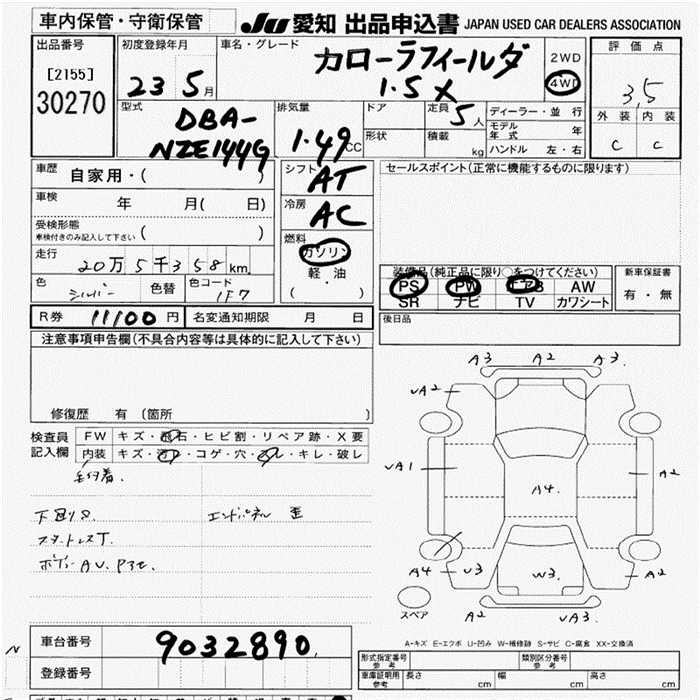 車内保管・守衛保管
JU 愛知 出品申込書 JAPAN USED CAR DEALERS ASSOCIATION
出品番号
[2155]
30270
初度登録年月
23 5月
車名・グレード
カローラフィールダ
1.5 X
2WD
4WD
評価点
3,5
外装 内装
C C
型式
DBA-
NZE144G
排気量
1.49 CC
ドア
形状
定員 5人
積載 kg
ディーラー・並行
モデル年式 年
ハンドル 左・右
車歴
自家用・( )
車検
年 月( 日)
受検形態
車検付きのみ記入して下さい ( )
走行
20万5千358km
色
シルバー
色替
色コード
1F7
シフト
AT
冷房
AC
燃料
ガソリン
軽油
・
( )
セールスポイント(正常に機能するものに限ります)
装備品(純正品に限り○をつけてください)
PS PW エアB AW
SR ナビ TV カワシート
新車保証書
有・無
R券 11100円 名変通知期限 月 日
後日品
注意事項申告欄(不具合内容等は具体的に記入して下さい)
修復歴 有 (箇所 )
検査員
記入欄
FW キズ・飛石・ヒビ割・リペア跡・X要
内装 キズ・汚レ・コゲ・穴・スレ・キレ・破レ
下回りS. エンドパネル 歪
スタットレスT.
A3 A2 A3.
√A2
√A1
A4.
A2
A4 √3
W3.
A2
A2 √A3.
スペア
A-キズ E-エクボ U-凹み W-補修跡 S-サビ C-腐食 XX-交換済
N
車台番号 9032890
登録番号
形式指定番号
参考
類別区分番号
参考
車庫証明用
参考
長さ cm 幅 cm 高さ cm